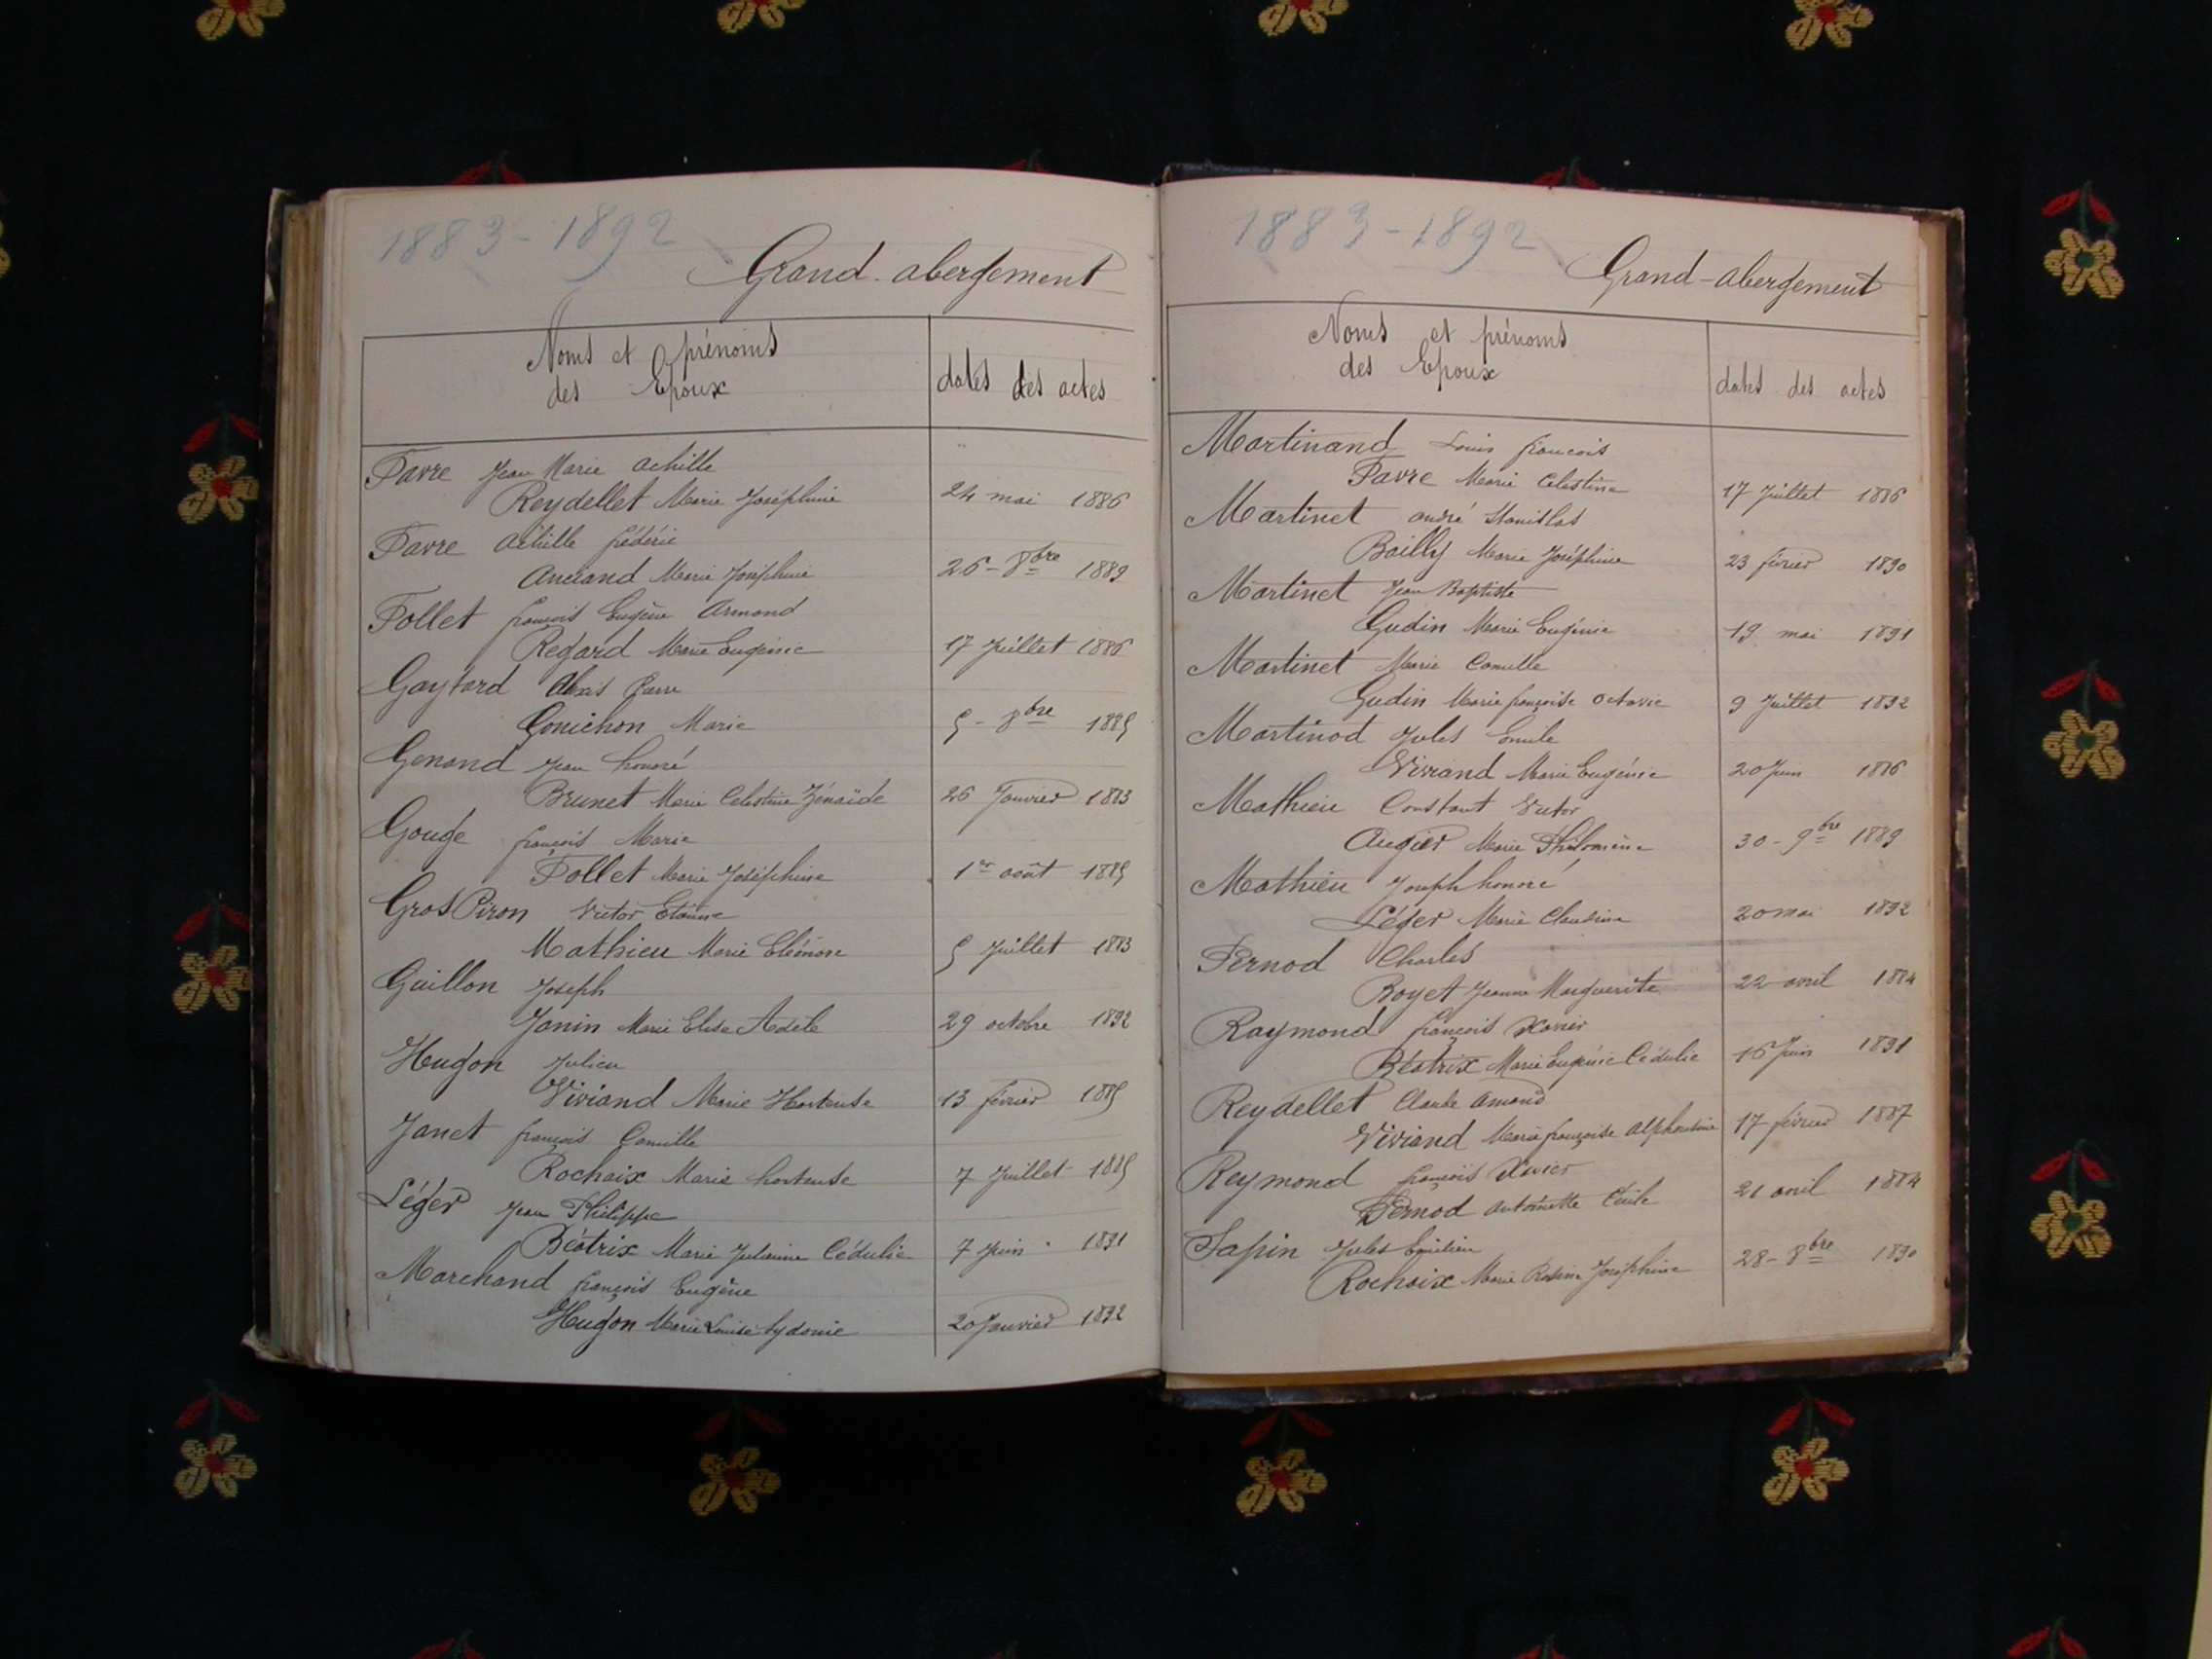 1883-1892
Grand-abergement
Noms et prénoms
des Epoux
dates des actes
Favre Jean Marie achille
Reydellet Marie Joséphine 24 mai 1886
Favre achille fédéric
Ancrand Marie Joséphine 26-8bre 1889
Follet françois Eugène Armand
Regard Marie Eugénie 17 Juillet 1886
Alexis
Gonichon Marie 5-8bre 1885
Genand Jean honoré
Brunet Marie Celestine Zénaïde 26 Janvier 1883
Gouge françois Marie
Follet Marie Joséphine 1er août 1885
Gros Piron Victor Etienne
Mathieu Marie Eléonore 5 Juillet 1883
Guillon Joseph
Janin Marie Elise Adèle 29 octobre 1892
Hugon Julien
Viviand Marie Hortense 13 février 1885
Janet françois Camille
Rochaix Marie hortense 7 Juillet 1885
Léger Jean Philippe
Béatrix Marie Julienne Cédulie 7 Juin 1891
Marchand françois Eugène
Hugon Marie Louise Sydonie 20 Janvier 1892
1883-1892
Grand-abergement
Noms et prénoms
des Epoux
dates des actes
Martinand Louis francois
Favre Marie Celestine 17 Juillet 1886
Martinet andré Stanislas
Bailly Marie Joséphine 23 févier 1890
Martinet Jean Baptiste
Gudin Marie Eugénie 19 mai 1891
Martinet Marie Camille
Gudin Marie françoise octavie 9 Juillet 1892
Martinod Jules Emile
Vivrand Marie Eugénie 20 Juin 1886
Mathieu Constant Victor
Augier Marie Philomène 30-9bre 1889
Mathieu Joseph honoré
Léger Marie Claudine 20 mai 1892
Pernod Charles
Boyet Jeanne Marguerite 22 avril 1884
Raymond françois Xavier
Béatrix Marie Eugénie Cédulie 16 Juin 1891
Reydellet Claude amand
Viviand Marie françoise alphonsine 17 février 1887
Reymond françois Xavier
Pernod antoinette Cécile 21 avril 1884
Sapin Jules Emilien
Rochaix Marie Rosine Joséphine 28-8bre 1890